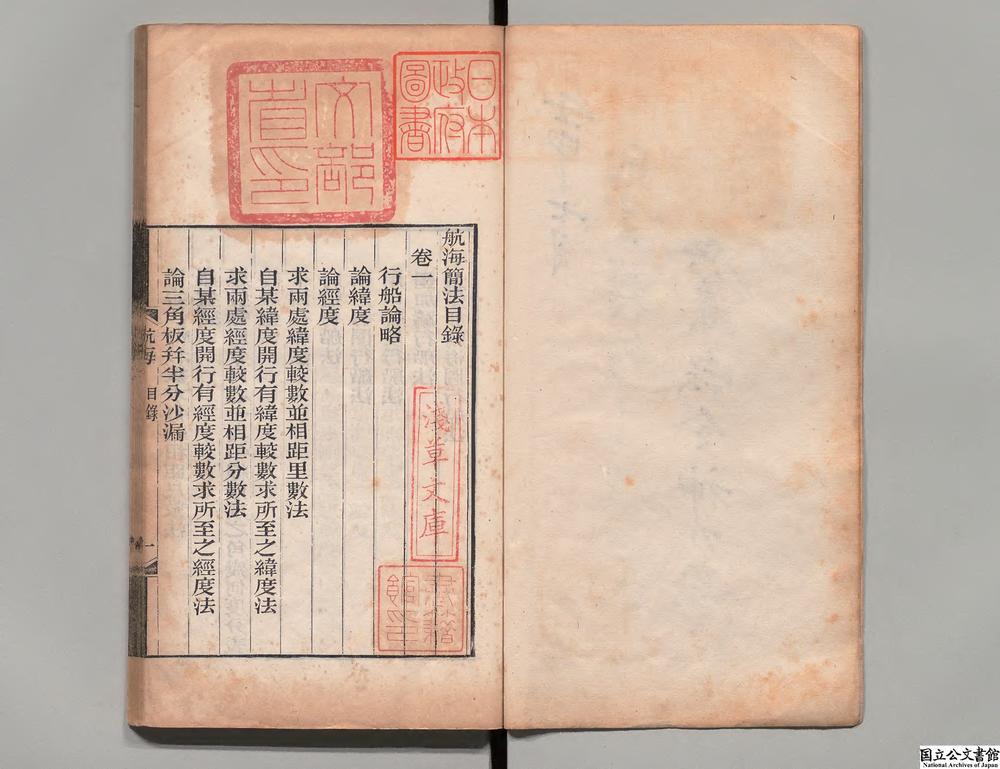 航海簡法目錄
卷一
行船論略
論緯度
論經度
求兩處緯度較數並相距里數法
自某緯度開行有緯度較數求所至之緯度法
求兩處經度較數並相距分數法
自某經度開行有經度較數求所至之經度法
論三角板幷半分沙漏
航海 目錄 一
日本
政府
圖書
文部
省印
淺草文庫
書籍
館印
国立公文書館
National Archives of Japan